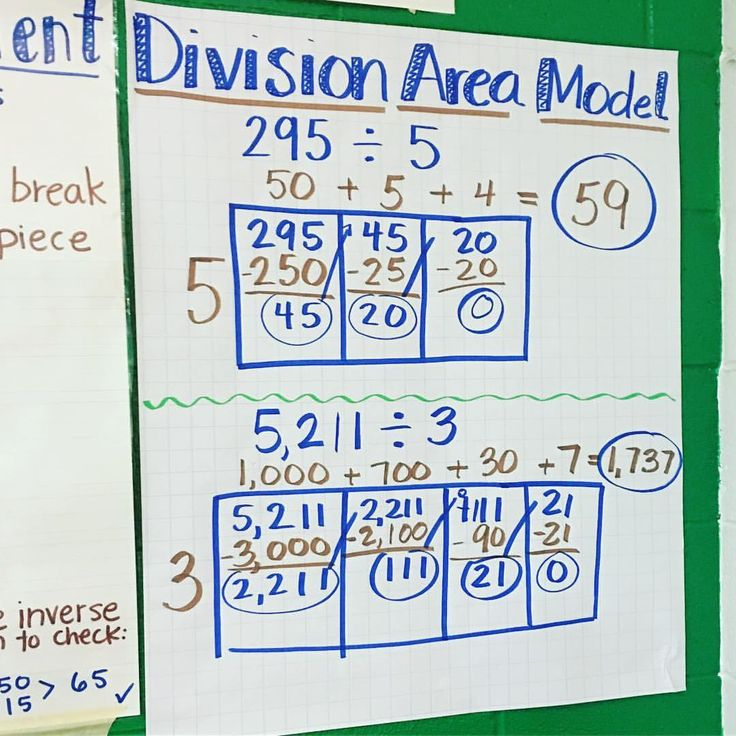 ent
s
break
piece
inverse
to check:
50 > 65 ✓
15
Division Area Model
295 ÷ 5
50 + 5 + 4 = 59
295 45 20
5 -250 -25 -20
45 20 0
5,211 ÷ 3
1,000 + 700 + 30 + 7 = 1,737
5,211 2,211 111 21
3 -3,000 -2,100 -90 -21
2,211 111 21 0